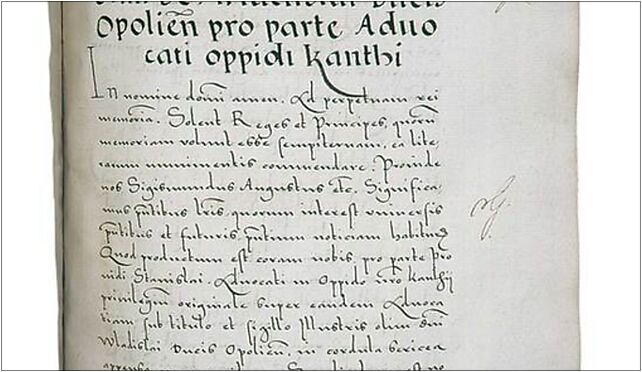 Opolien̄ pro parte Aduo
cati oppidi Kanthi
In nomine domi amen. Ad perpetuam rei
memoria. Solent Reges et Principes, quoru
memoriam volunt esse sempiternam, ea lite-
rarum munimentis commendare. Proinde
nos Sigismundus Augustus etc. Significa-
mus p̄ntibus l̄ris, quorum interest vniuersis
p̄ntibus et futuris, p̄ntium noticiam habituris
Quod productum est coram nobis, pro parte Pro
uidi Stanislai, Aduocati in Oppido n̄ro Kanthy
priuilegium originale super eandem Aduoca
tiam sub titulo et sigillo Illustris olim dn̄i
Wladislai Ducis Opolien̄, in cordula sericea